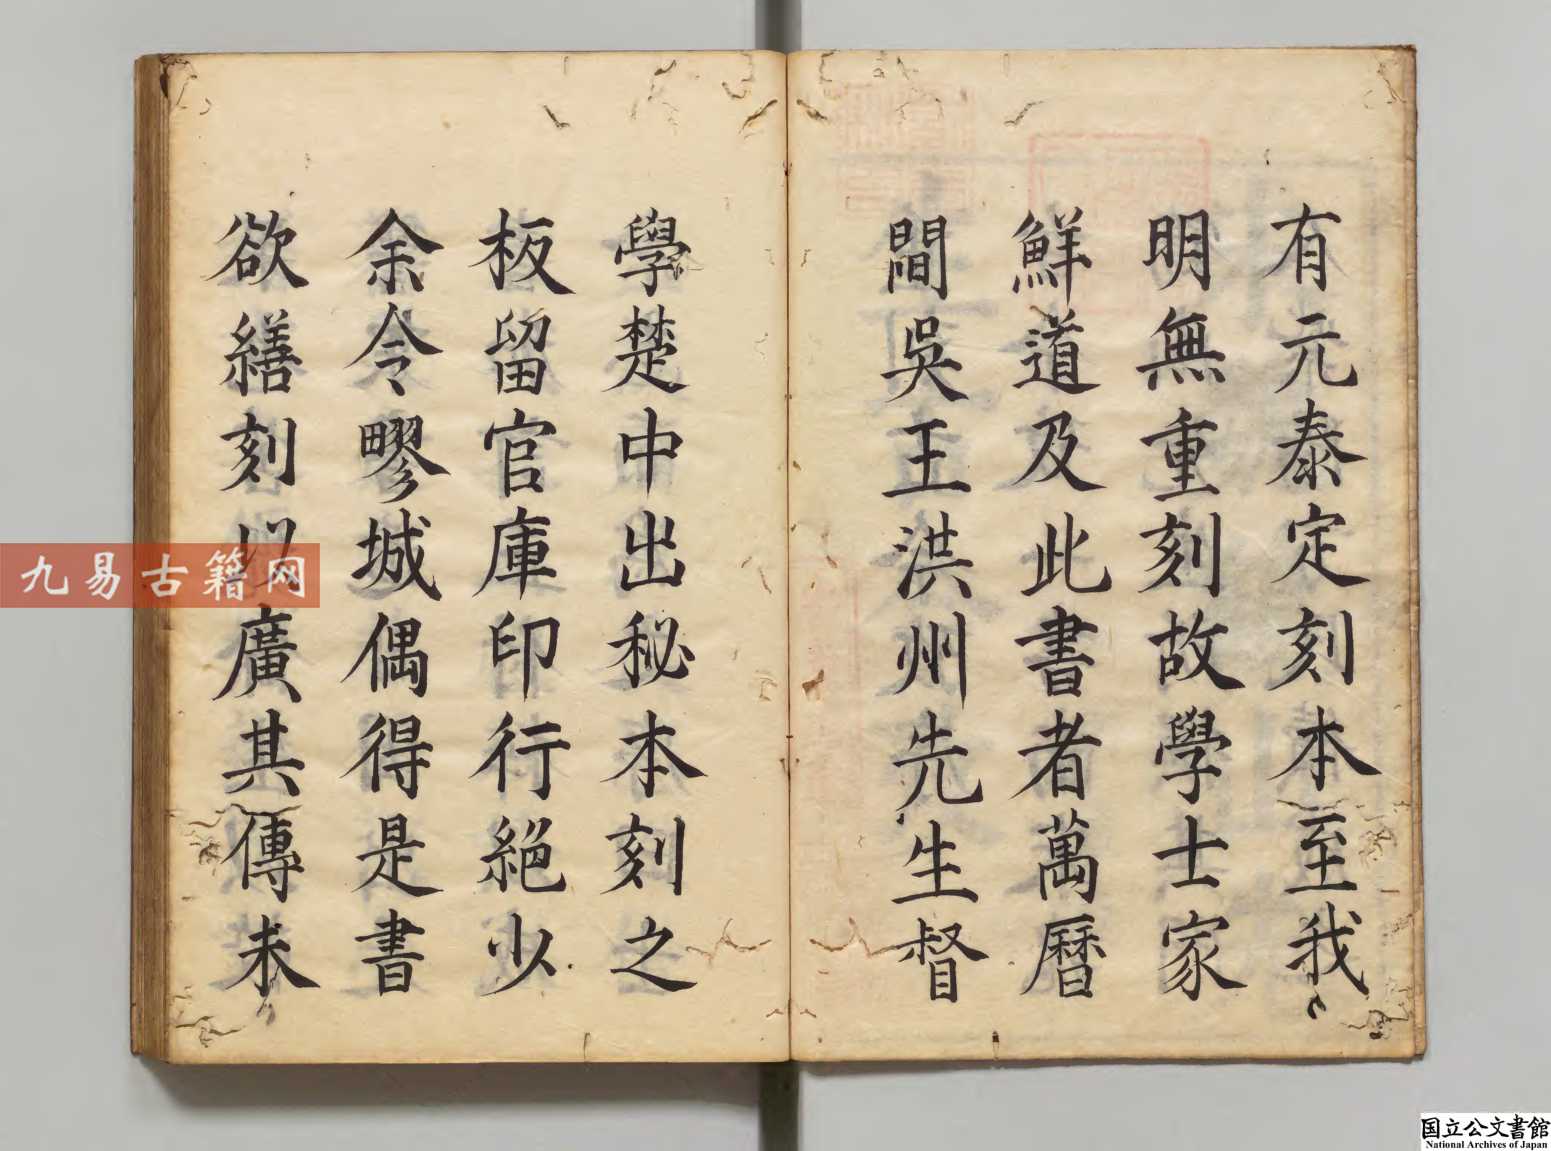 有元泰定刻本至我
明無重刻故學士家
鮮道及此書者萬曆
間吳王洪州先生督
學楚中出秘本刻之
板留官庫印行絕少
余令疁城偶得是書
欲繕刻以廣其傳未
九易古籍网
国立公文書館
National Archives of Japan